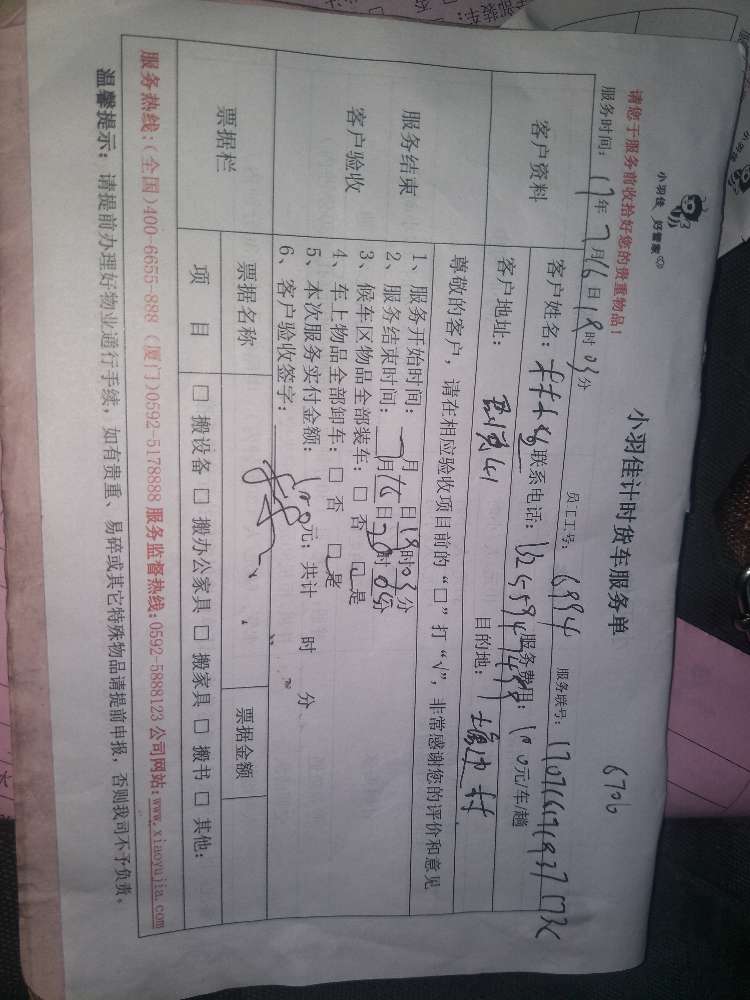 小羽佳 好管家
小羽佳计时货车服务单
6706
请您于服务前收拾好您的贵重物品！
服务时间：17年7月16日18时03分
员工工号：6994
服务联号：
客户资料
客户姓名：
联系电话：
服务费用：100元/车/趟
客户地址：
目的地：
服务结束
客户验收
尊敬的客户，请在相应验收项目前的“□”打“√”，非常感谢您的评价和意见
1、服务开始时间：7月16日18时03分
2、服务结束时间：7月16日20时03分
3、候车区物品全部装车：□ 否 □是
4、车上物品全部卸车：□ 否 □是
5、本次服务实付金额：100元；共计 时 分
6、客户验收签字：
票据栏
票据名称
票据金额
项 目
□ 搬设备 □ 搬办公家具 □ 搬家具 □ 搬书 □ 其他：
服务热线：(全国)400-6655-888 (厦门)0592-5178888 服务监督热线：0592-5888123 公司网站：www.xiaoyujia.com
温馨提示：请提前办理好物业通行手续，如有贵重、易碎或其它特殊物品请提前申报，否则我司不予负责。